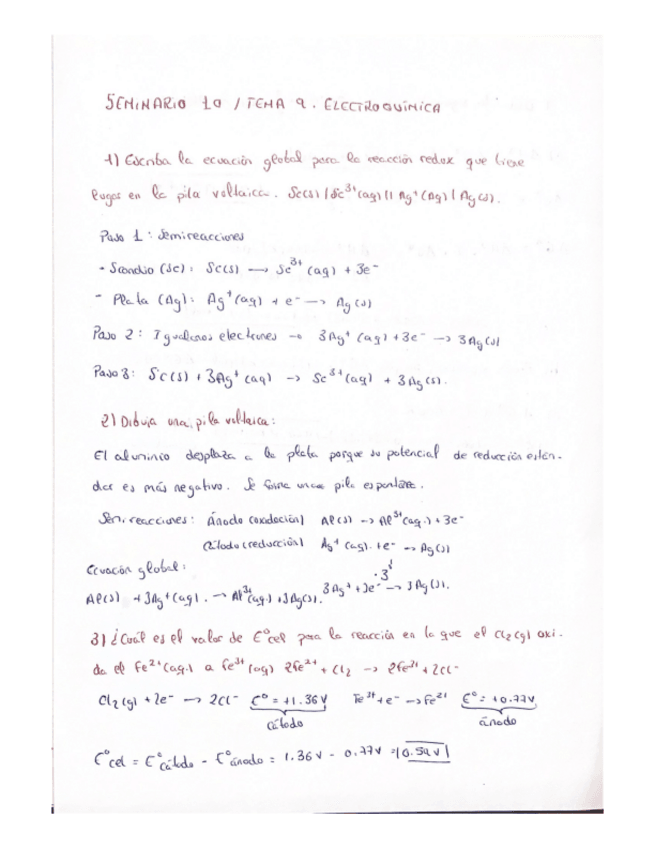 SEMINARIO 10 / TEMA 9. ELECTROQUÍMICA
1) Escriba la ecuación global para la reacción redox que tiene
lugar en la pila voltaica. Sc(s) | Sc³⁺(aq) || Ag⁺(Aq) | Ag(s).
Paso 1: Semireacciones
- Scandio (Sc): Sc(s) ⟶ Sc³⁺ (aq) + 3e⁻
- Plata (Ag): Ag⁺(aq) + e⁻ ⟶ Ag(s)
Paso 2: Igualamos electrones → 3Ag⁺ (aq) + 3e⁻ → 3Ag(s)
Paso 3: Sc(s) + 3Ag⁺ (aq) → Sc³⁺(aq) + 3Ag(s).
2) Dibuja una pila voltaica:
El aluminio desplaza a la plata porque su potencial de reducción están-
dar es más negativo. Se forma una pila espontánea.
Semireacciones: Ánodo (oxidación) Al(s) → Al³⁺(aq.) + 3e⁻
Cátodo (reducción) Ag⁺ (aq). + e⁻ → Ag(s)
Ecuación global: · 3
Al(s) + 3Ag⁺(aq). → Al³⁺(aq.) + 3Ag(s). 3Ag⁺ + 3e⁻ → 3Ag(s).
3) ¿Cuál es el valor de E°cel para la reacción en la que el Cl₂(g) oxi-
da el Fe²⁺(aq.) a Fe³⁺(aq) 2Fe²⁺ + Cl₂ → 2Fe³⁺ + 2Cl⁻
Cl₂(g) + 2e⁻ ⟶ 2Cl⁻ E° = +1.36V Fe³⁺ + e⁻ → Fe²⁺ E° = +0.77V
cátodo ánodo
E°cel = E°cátodo - E°ánodo = 1.36V - 0.77V = 0.59V